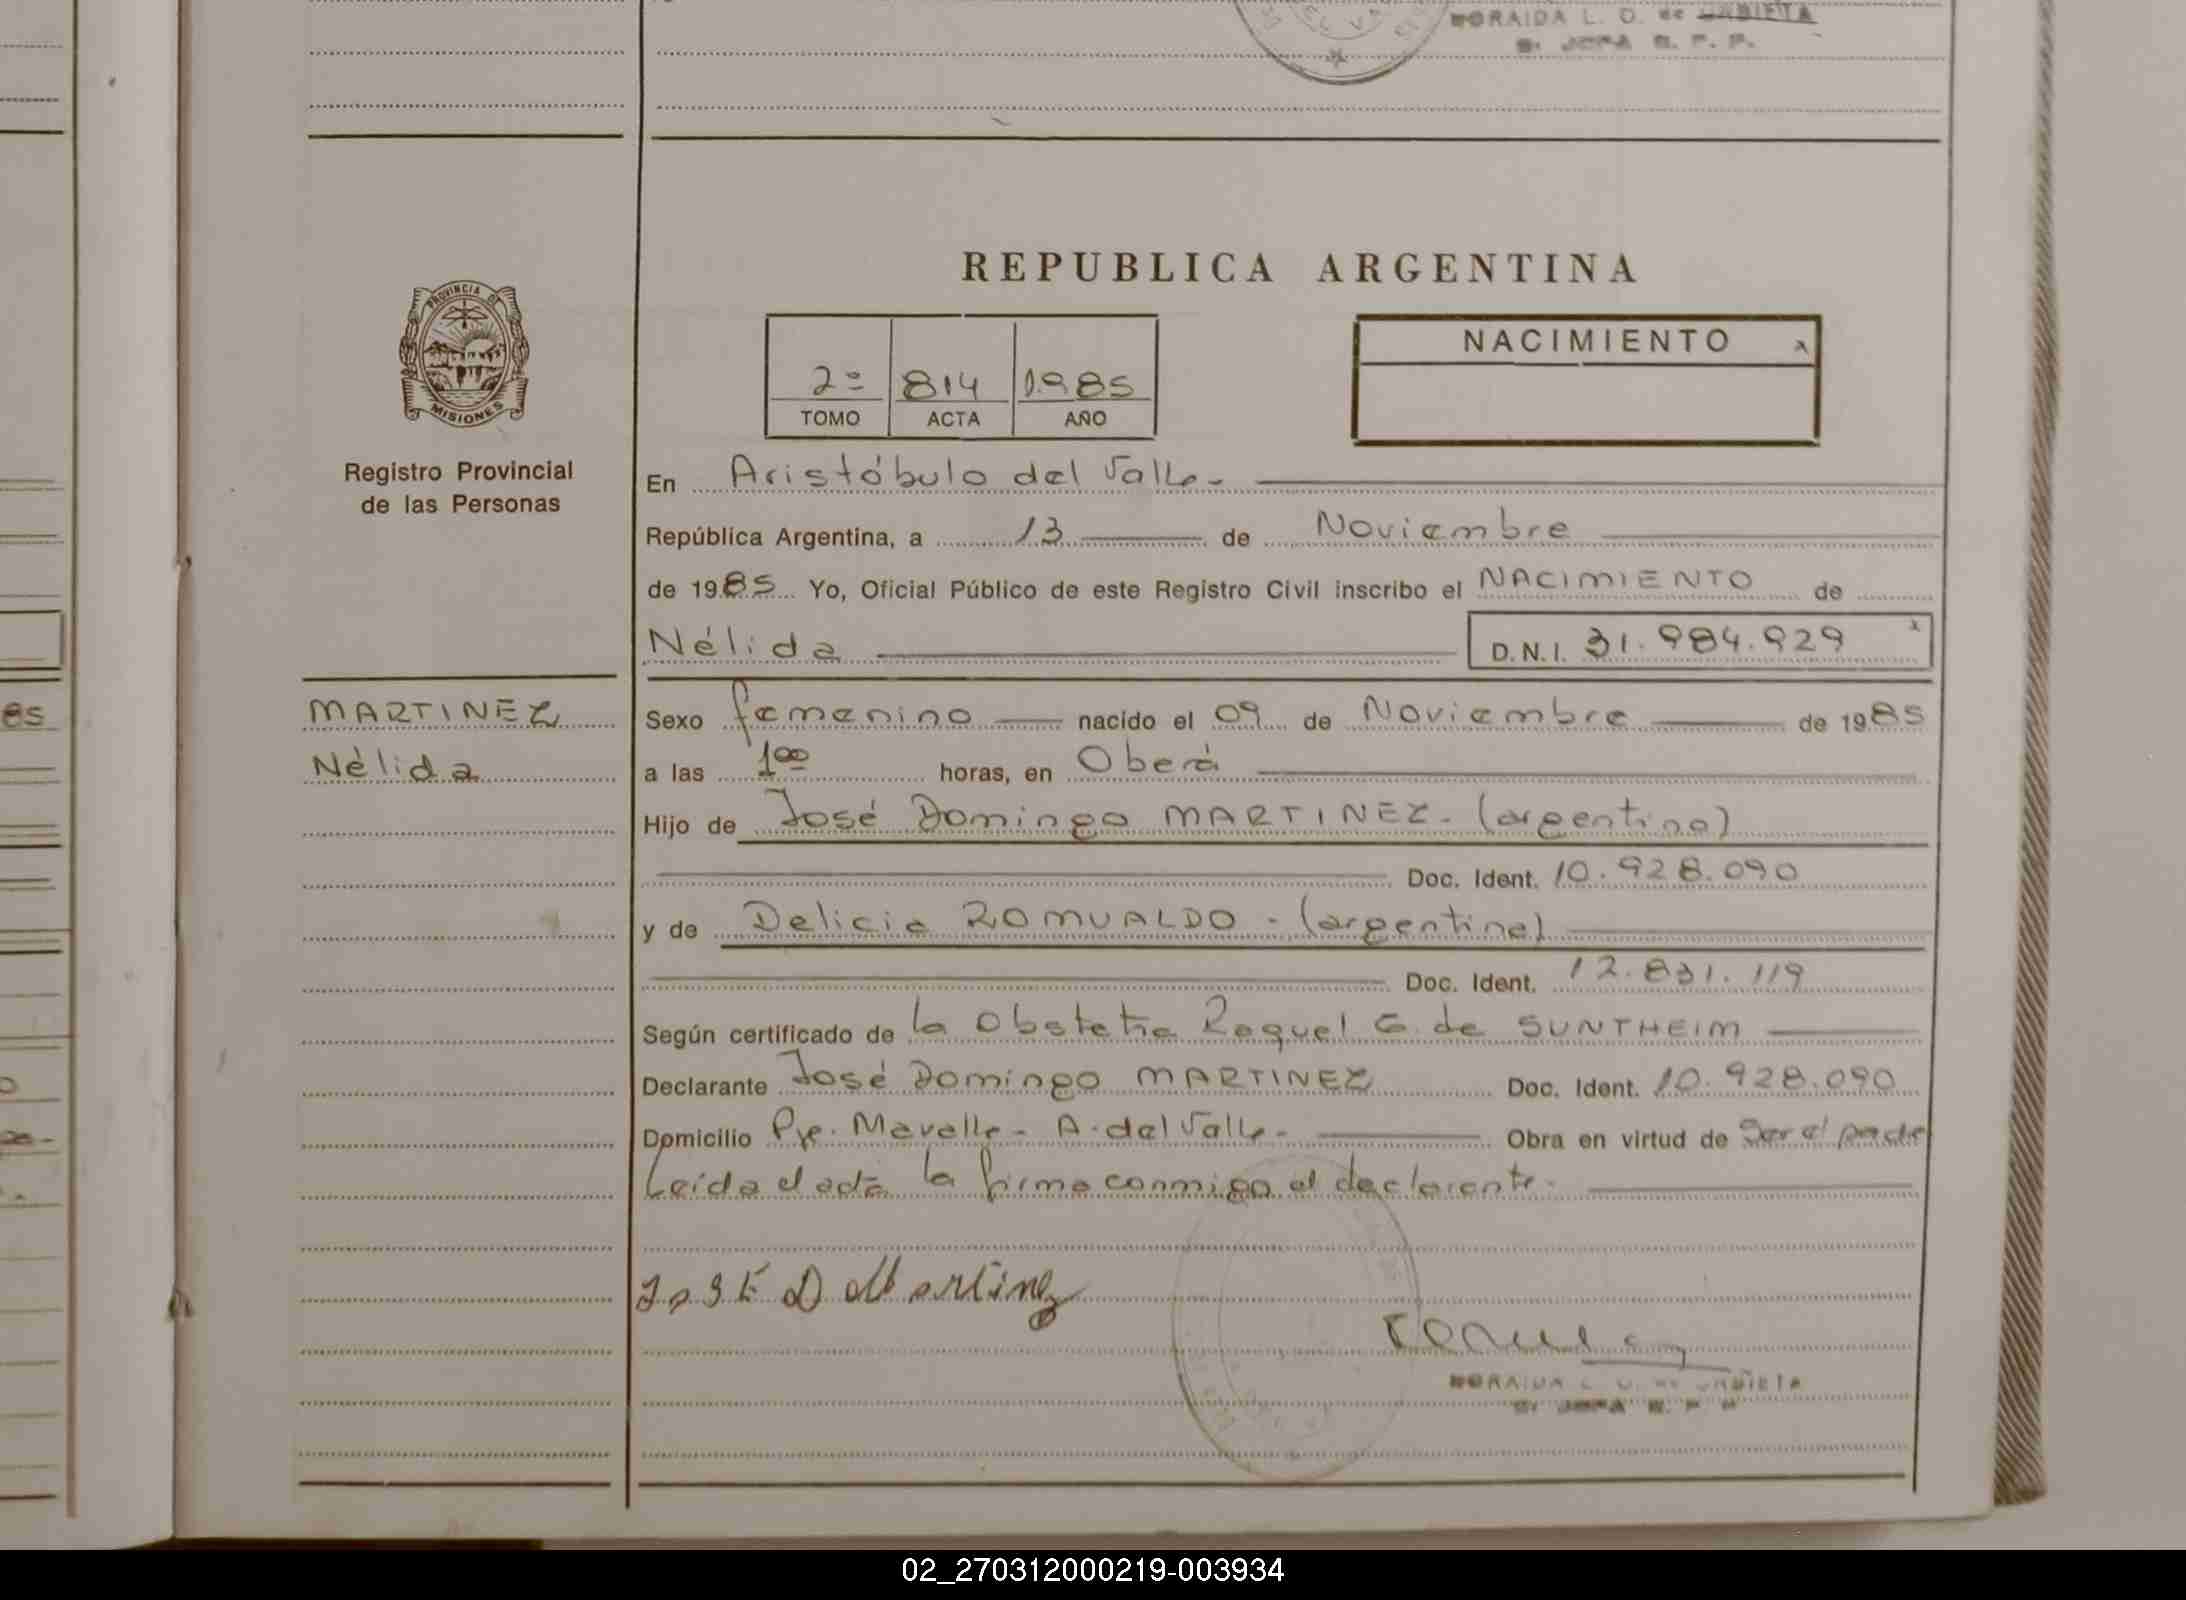 NORAIDA L. O. de URBIETA
REPUBLICA ARGENTINA
PROVINCIA DE
MISIONES
NACIMIENTO
2º 814 1985
TOMO ACTA AÑO
Registro Provincial
de las Personas
En Aristóbulo del Valle-
República Argentina, a 13 de Noviembre
de 1985 Yo, Oficial Público de este Registro Civil inscribo el NACIMIENTO de
Nélida D.N.I. 31.984.929
MARTINEZ
Nélida
85
Sexo femenino nacido el 09 de Noviembre de 1985
a las 1 00 horas, en Oberá
Hijo de José Domingo MARTINEZ - (argentino)
Doc. Ident. 10.928.090
y de Delicia ROMUALDO - (argentina)
Doc. Ident. 12.831.119
Según certificado de la Obstetra Raquel G. de SUNTHEIM
Declarante José Domingo MARTINEZ Doc. Ident. 10.928.090
Domicilio Pje. Mavalle - A. del Valle - Obra en virtud de ser el padre
Leída el acta la firma conmigo el declarante.
José D Martinez
NORAIDA L. O. de URBIETA
02_270312000219-003934